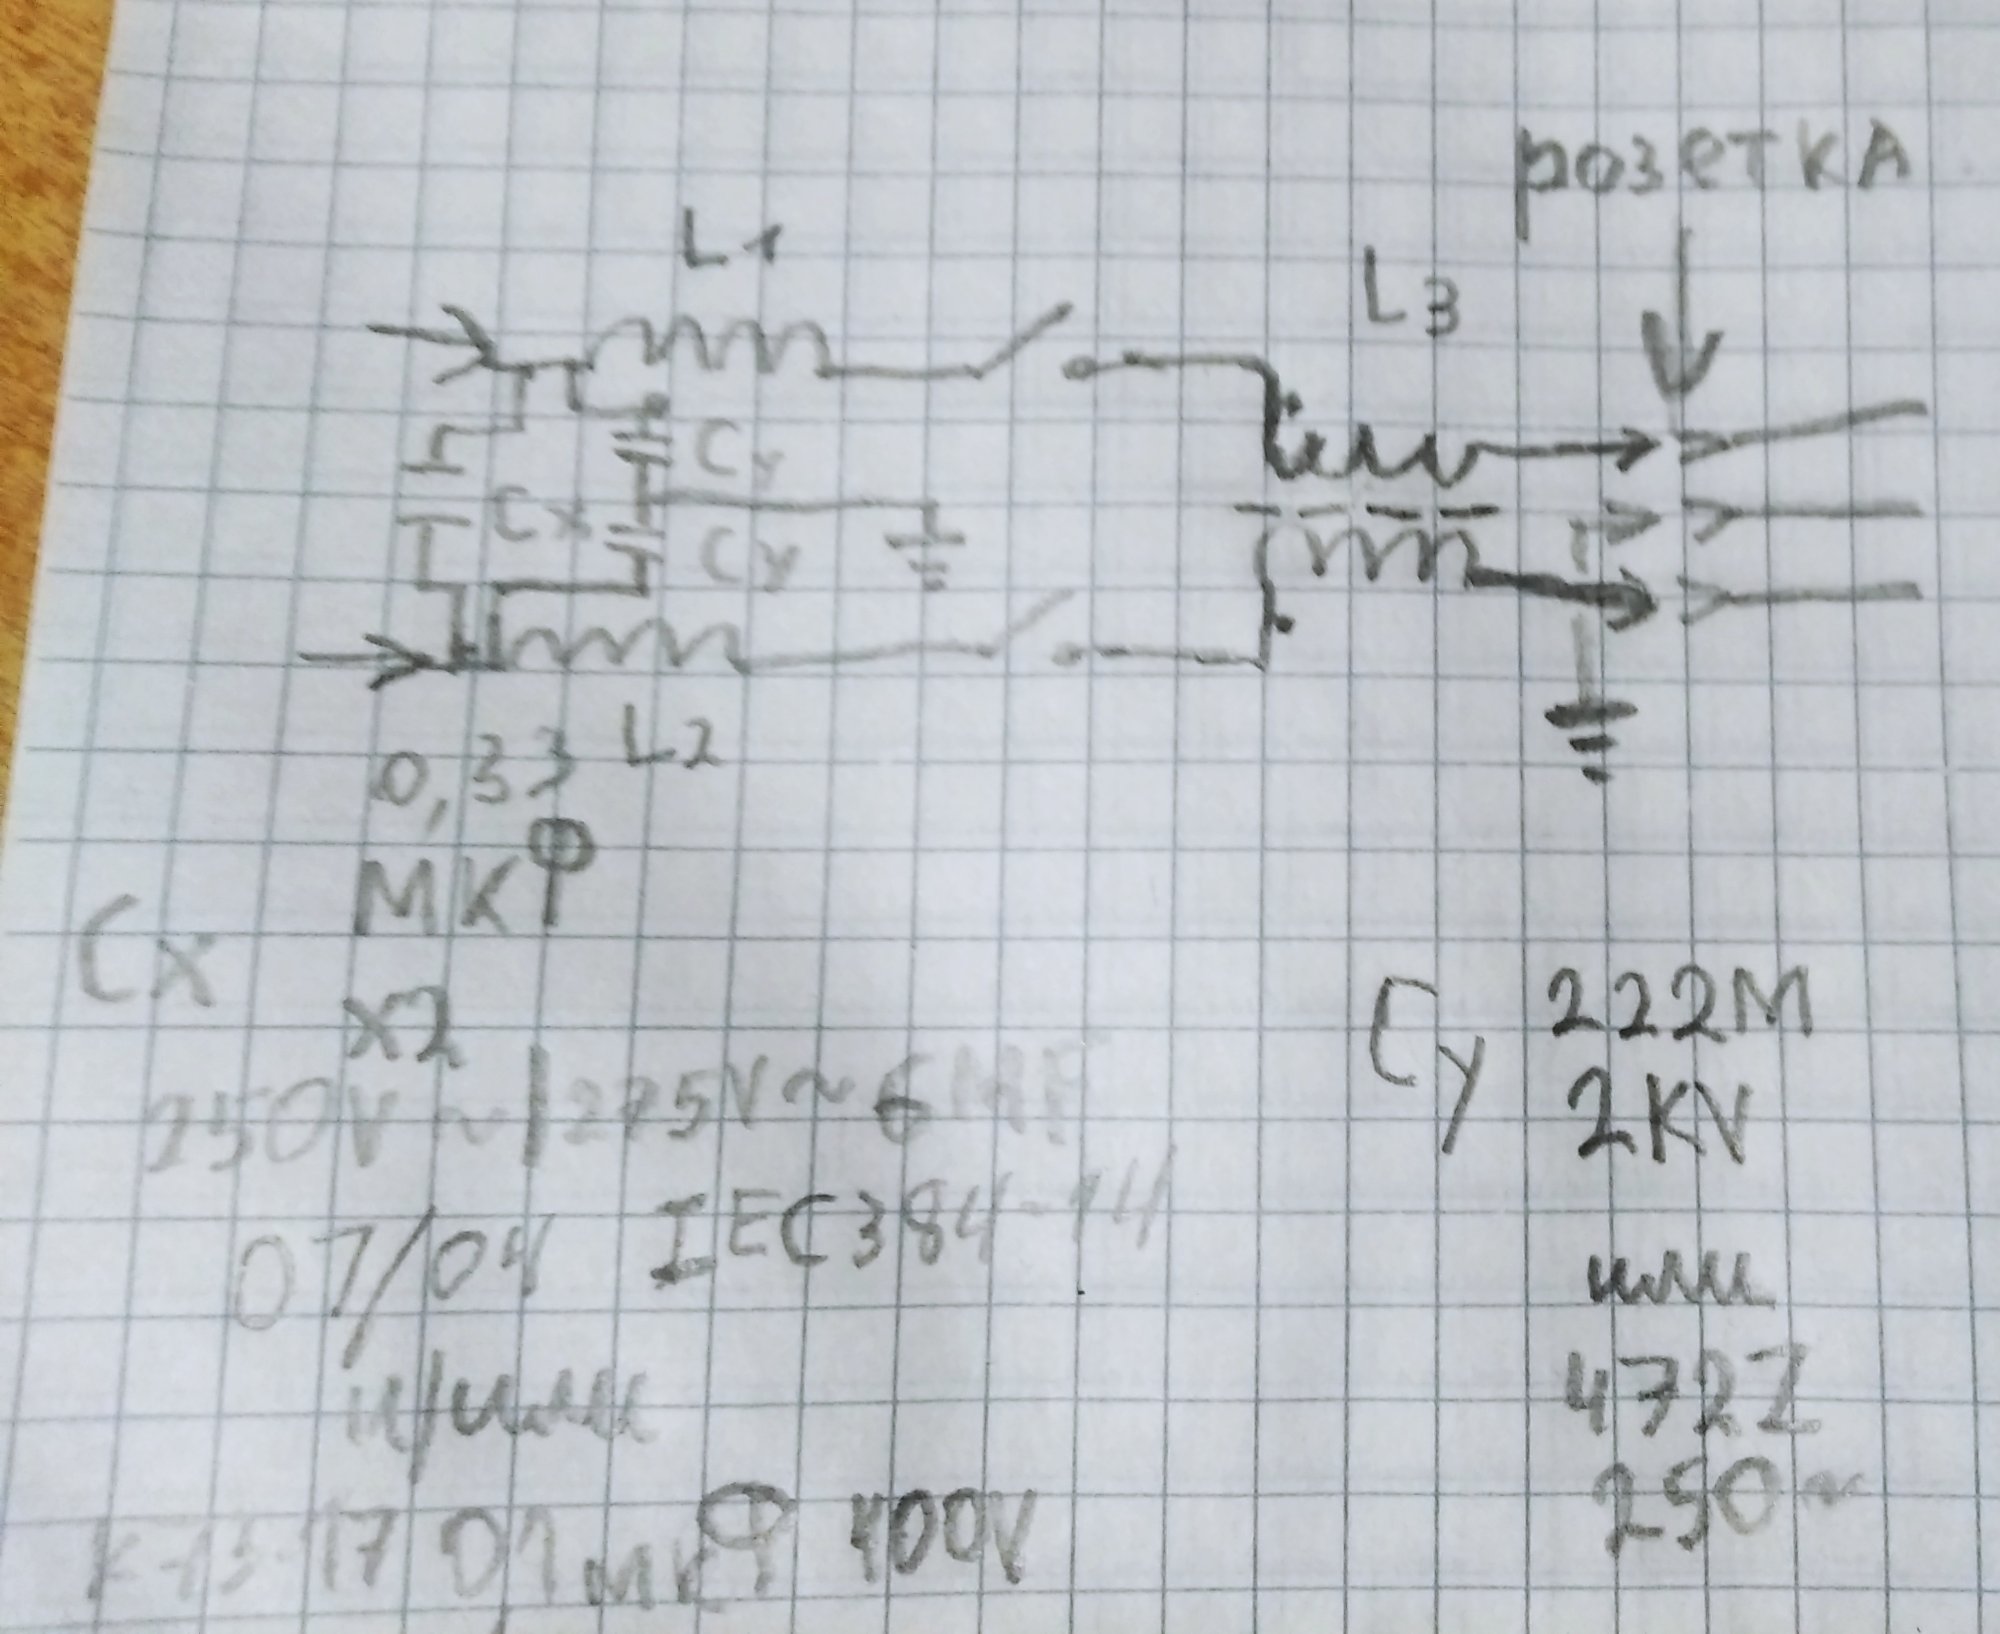 розетка
L1
L3
Cy
Cx
Cy
L2
0,33
мкФ
Cx
x2
250V~/275V~
07/04 IEC384-14
и/или
К73-17 0,1 мкФ 400V
Cy 222M
2KV
или
472Z
250~